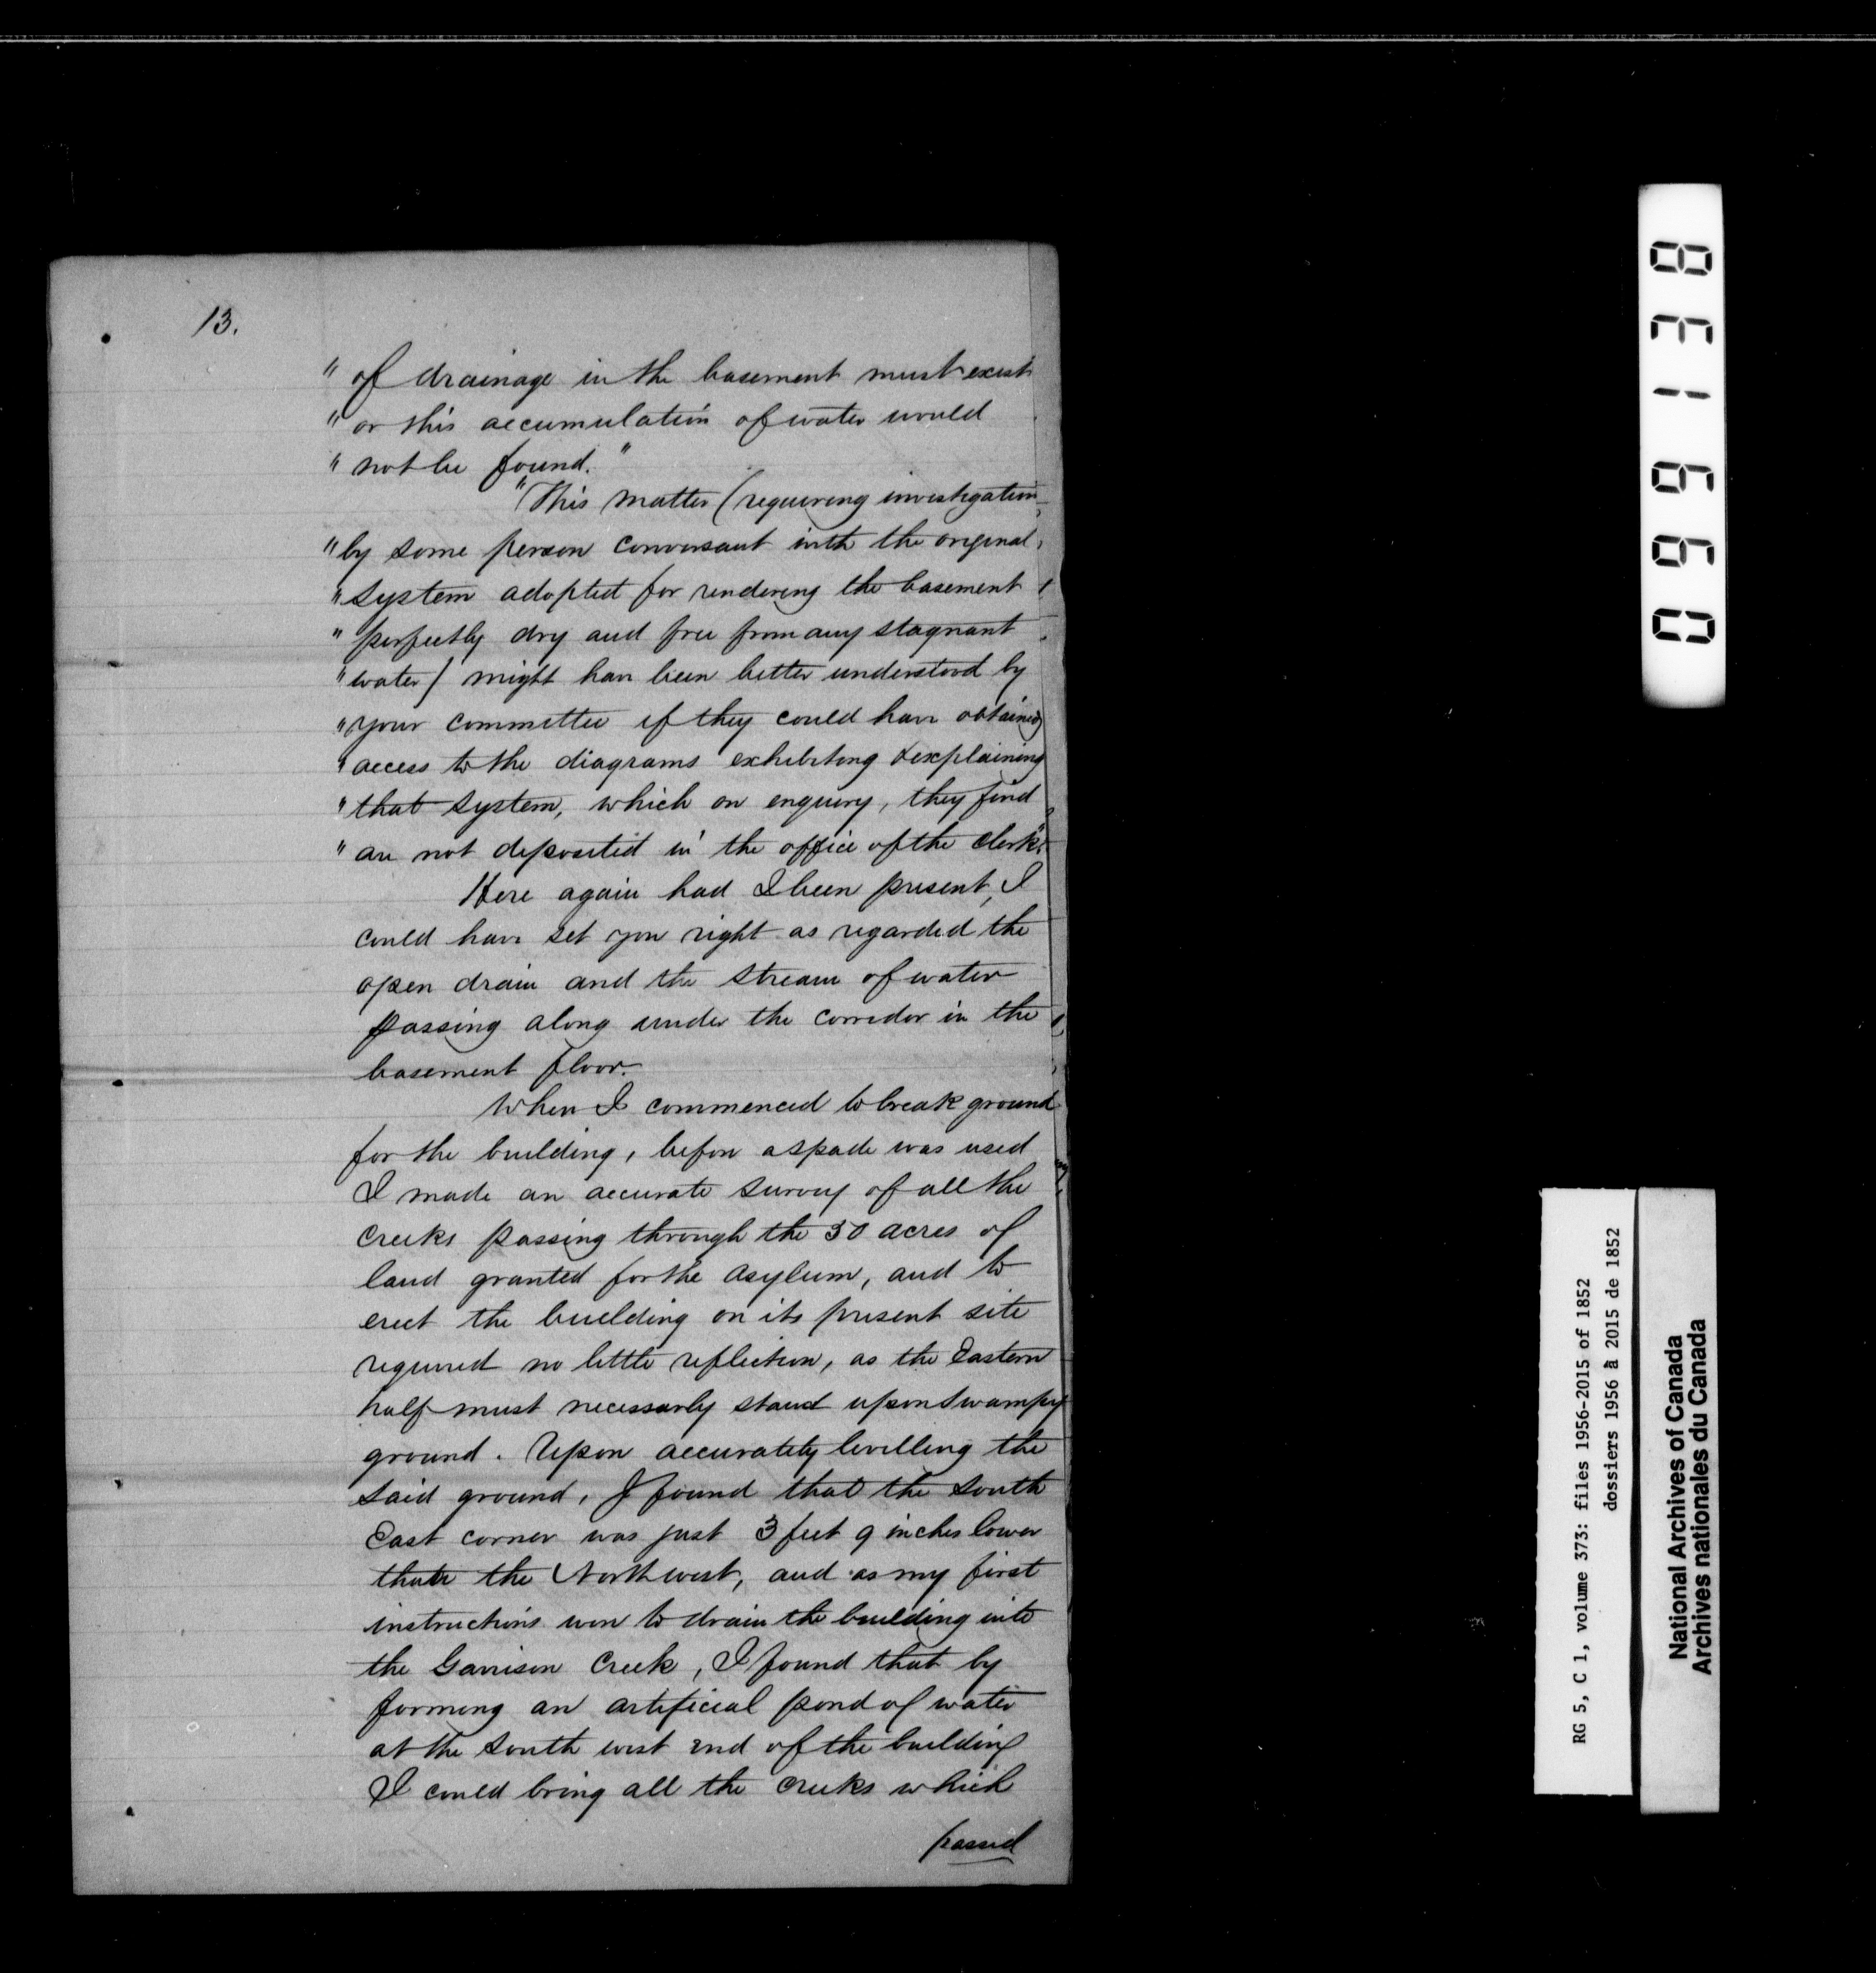 13.
" of drainage in the basement must exist
" or this accumulation of water would
" not be found."
"This matter (requiring investigation
" by some person conversant with the original
" system adopted for rendering the basement
" perfectly dry and free from any stagnant
" water) might have been better understood by
" your committee if they could have obtained
" access to the diagrams exhibiting & explaining
" that system, which on enquiry, they find
" are not deposited in the office of the clerk."
Here again had I been present, I
could have set you right as regarded the
open drain and the stream of water
passing along under the corridor in the
basement floor.
When I commenced to break ground
for the building, before a spade was used
I made an accurate survey of all the
creeks passing through the 50 acres of
land granted for the Asylum, and to
erect the building on its present site
required no little reflection, as the Eastern
half must necessarily stand upon Swampy
ground. Upon accurately levelling the
said ground, I found that the South
East corner was just 3 feet 9 inches lower
than the North west, and as my first
instructions were to drain the building into
the Garrison Creek, I found that by
forming an artificial pond of water
at the South west end of the building
I could bring all the creeks which
passed
096138
RG 5, C 1, volume 373: files 1956-2015 of 1852
dossiers 1956 à 2015 de 1852
National Archives of Canada
Archives nationales du Canada